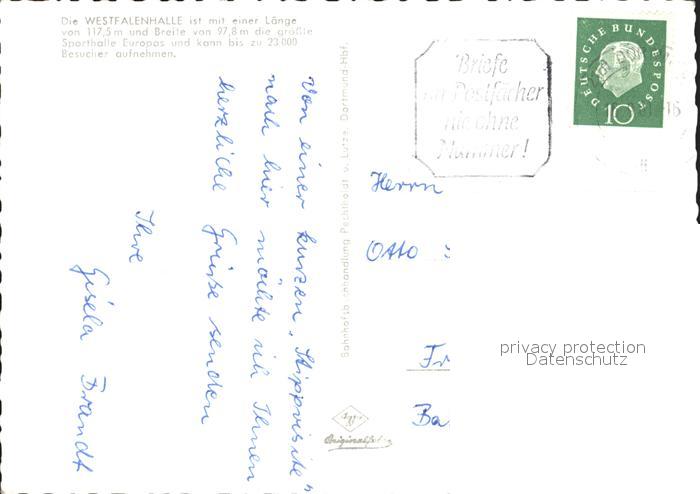 Die WESTFALENHALLE ist mit einer Länge
von 117,5 m und Breite von 97,8 m die größte
Sporthalle Europas und kann bis zu 23 000
Besucher aufnehmen.
Von einer kurzen „Stippvisite"
nach hier möchte ich Ihnen
herzliche Grüße senden
Ihre
Gisela Brandt
Bahnhofsbuchhandlung Pechtholdt v. Lutze, Dortmund-Hbf.
Briefe
an Postfächer
nie ohne
Nummer!
DEUTSCHE BUNDESPOST
10
Herrn
Otto
Fr
Ba
privacy protection
Datenschutz
Originalfoto